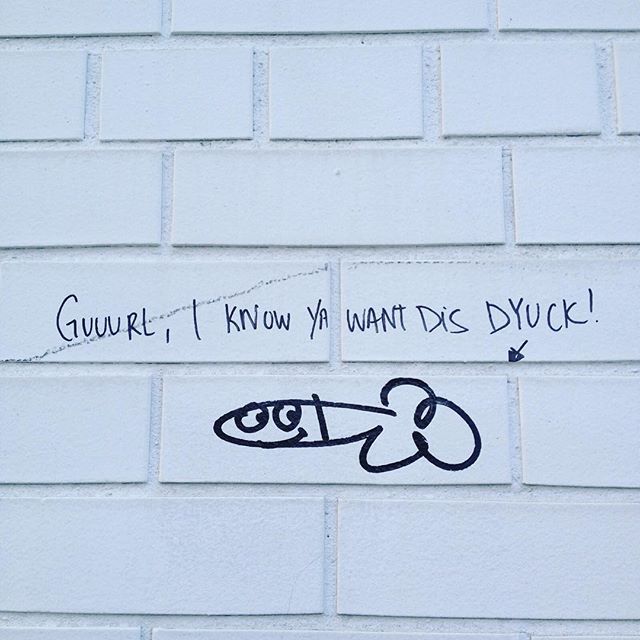 GUUURL, I KNOW YA WANT DIS DYUCK!